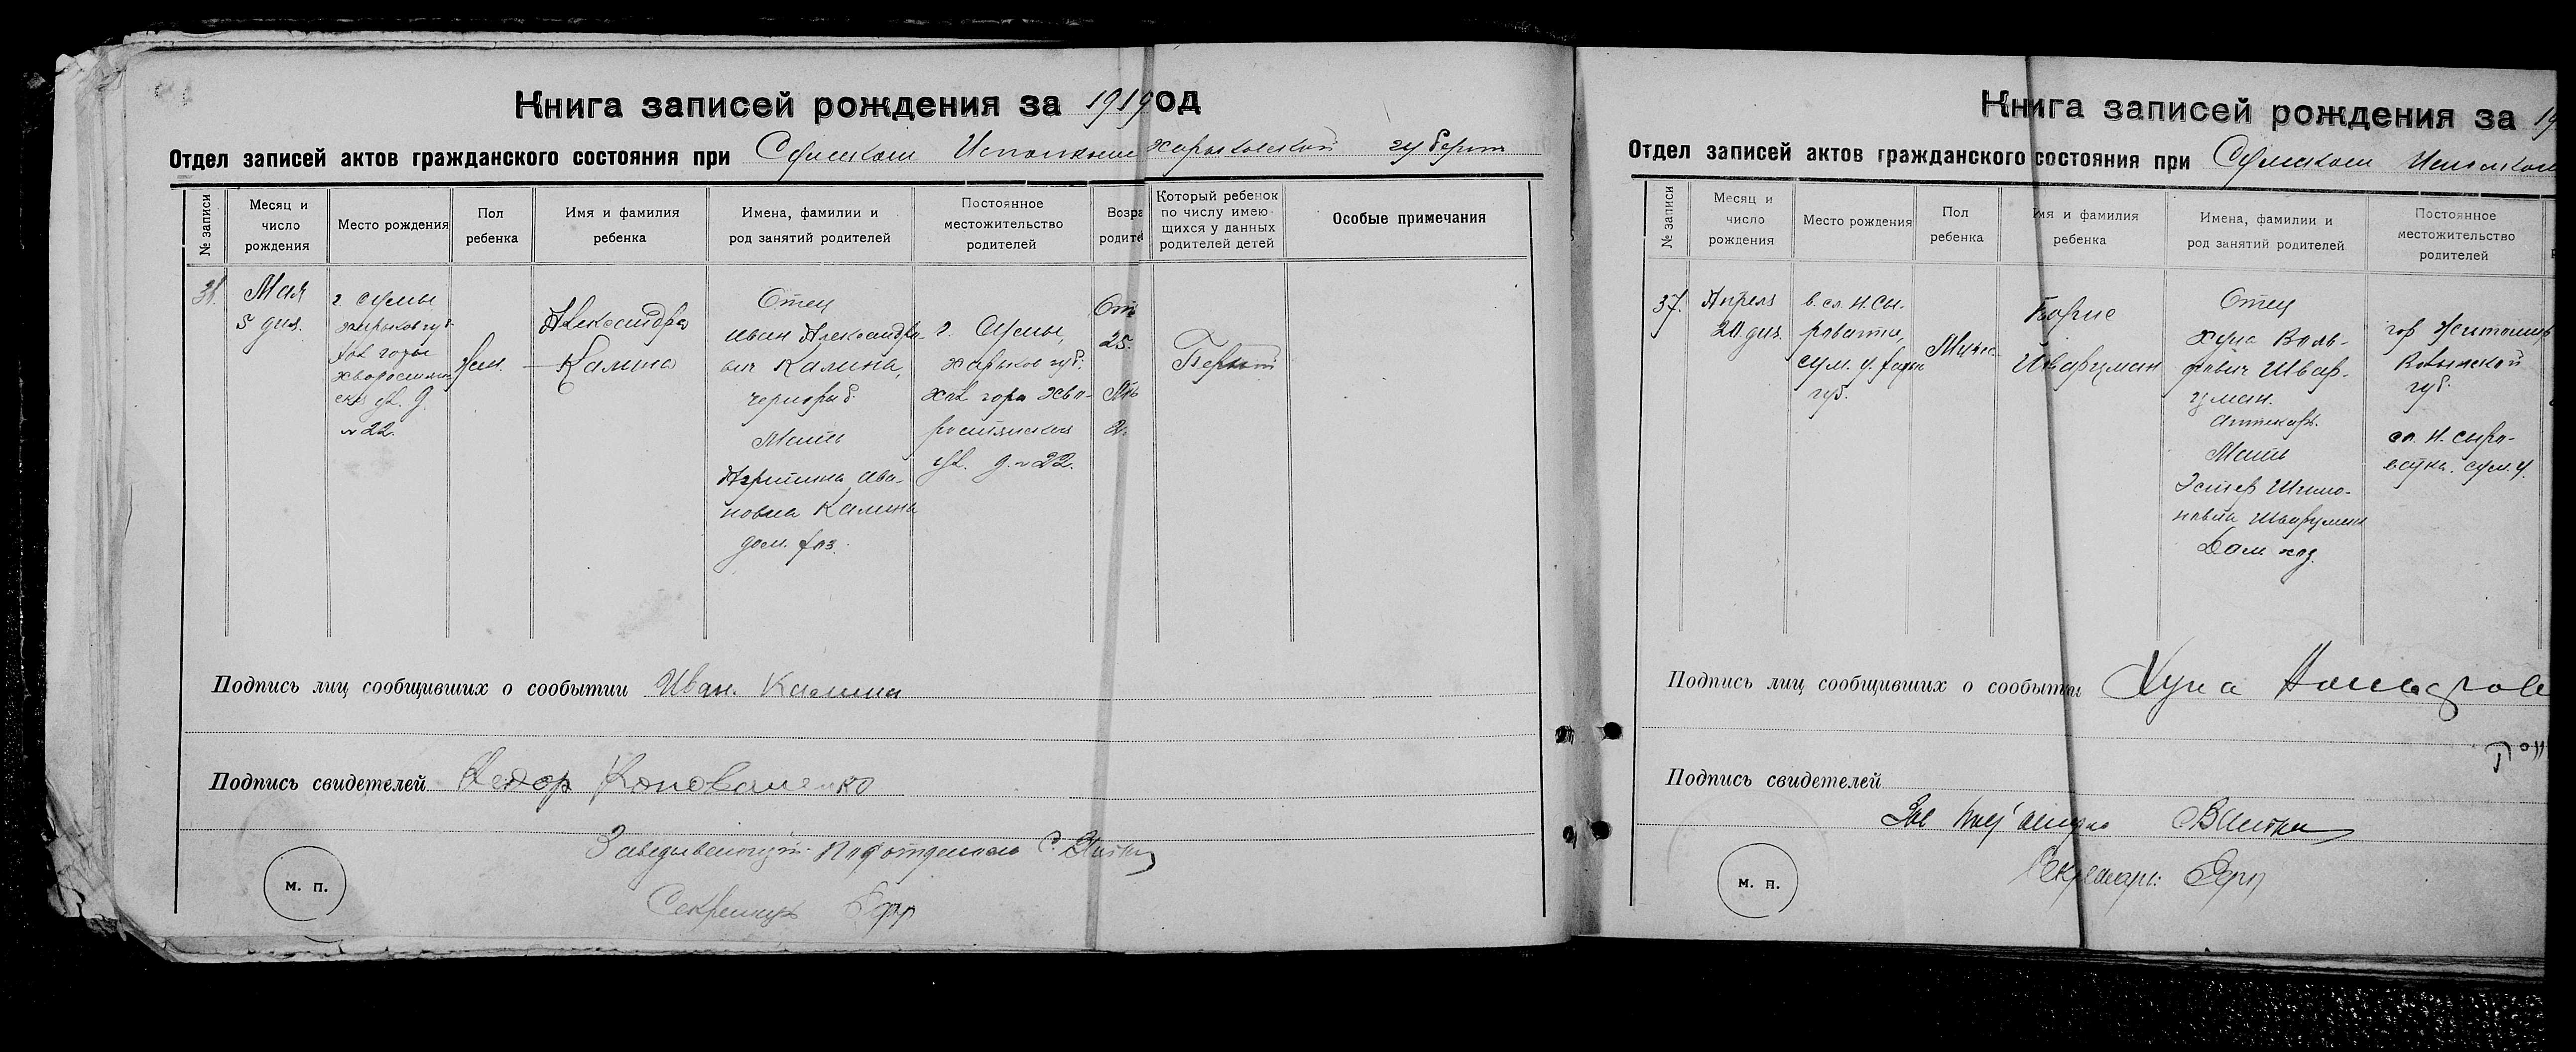 Книга записей рождения за 1919 од
Отдел записей актов гражданского состояния при Сумском Исполкоме Харьковской губерн
№ записи
Месяц и число рождения
Место рождения
Пол ребенка
Имя и фамилия ребенка
Имена, фамилии и род занятий родителей
Постоянное местожительство родителей
Возра родите
Который ребенок по числу имеющихся у данных родителей детей
Особые примечания
Мая
5 дня.
г. Сумы
харьков губ.
№ 22.
Жен.
Александра
Калина
Отец
Иван Александро-
вич Калина,
чернораб.
Мать
Ива-
новна Калина
дом. хоз.
г. Сумы,
харьков губ.
д. № 22.
От
25.
Первый
Подпись лиц сообщивших о событии Иван. Калина
Подпись свидетелей Федор Коноваленко
Заведывающий Подотделом С.
Секретарь
м. п.
Книга записей рождения за 19
Отдел записей актов гражданского состояния при Сумском Исполком
№ записи
Месяц и число рождения
Место рождения
Пол ребенка
Имя и фамилия ребенка
Имена, фамилии и род занятий родителей
Постоянное местожительство родителей
37.
Апреля
20 дня.
в. сл. Н. Сы-
роватка,
сум. у. харьк
губ.
Мужс.
Борис
Шварцман
Отец
Хуна Воль-
фович Швар-
цман.
Аптекарь.
Мать
Эстер Шимо-
новна Шварцман
Дом. хоз.
гор Житомир
Волынской
губ.
сл. Н. Сыро-
ватка. сум. у.
Подпись лиц сообщивших о событии Хуна
Подпись свидетелей
Зав
Секретарь:
м. п.